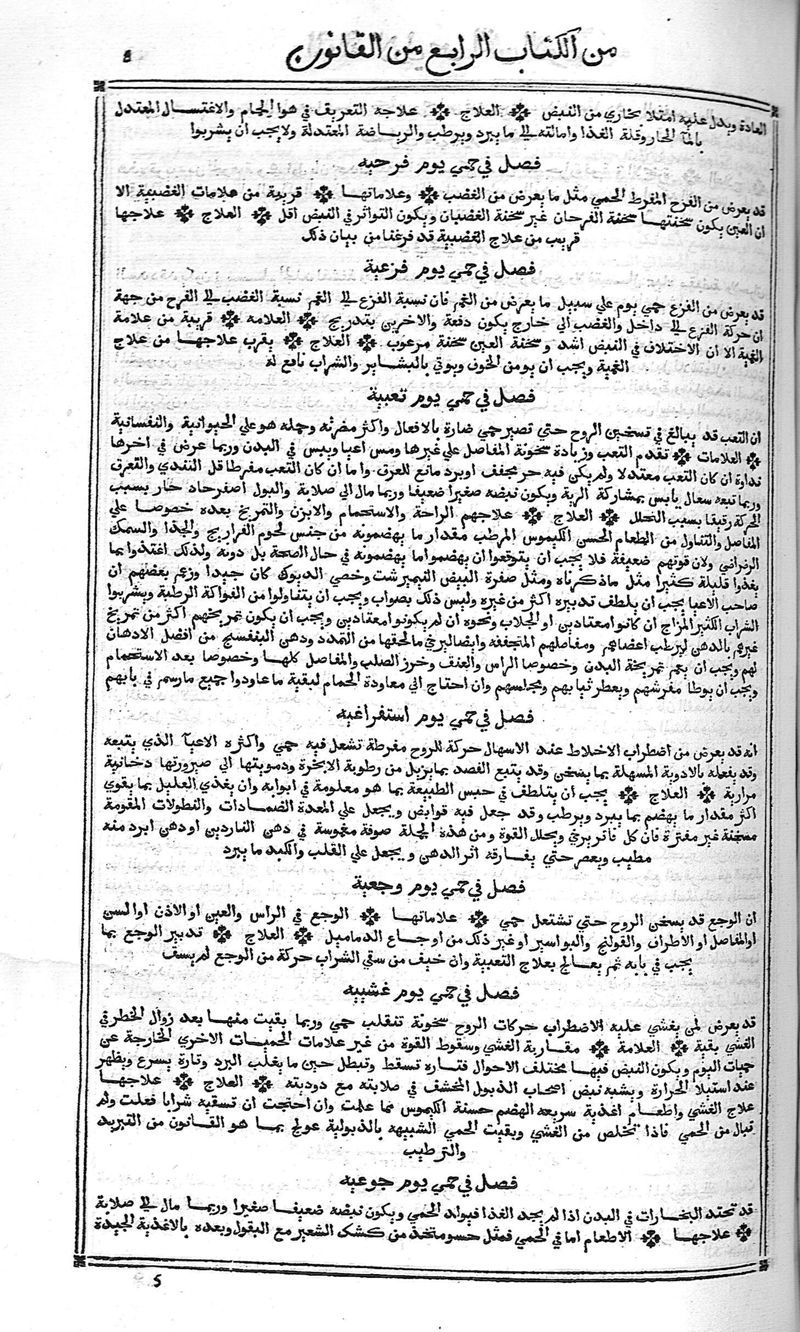 من الكتاب الرابع من القانون
٥
العادة ويدل عليه امتلا بخاري من النبض العلاج علاجه التعريف في هوا الحمام والاغتسال المعتدل
بالمآ الحار وقلة الغذا وامالته الي ما يبرد ويرطب والرياضة المعتدلة ولا يجب ان يشربوا
فصل في حمي يوم فرحية
قد يعرض من الفرح المفرط الحمي مثل ما يعرض من الغضب وعلاماتها قريبة من علامات الغضبية الا
ان العين يكون سحنتها سحنة الفرحان غير سحنة الغضبان ويكون التواتر في النبض اقل العلاج علاجها
قريب من علاج الغضبية قد فرغنا من بيان ذلك
فصل في حمي يوم فزعية
قد يعرض من الفزع حمي يوم علي سبيل ما يعرض من الغم فان نسبة الفزع الي الغم نسبة الغضب الي الفرح من جهة
ان حركة الفزع الي داخل والغضب الي خارج يكون دفعة والاخرين بتدريج العلامه قريبة من علامة
الغمية الا ان الاختلاف في النبض اشد وسحنة العين سحنة مرعوب العلاج يقرب علاجها من علاج
الغمية ويجب ان يومن الخوف ويوتي بالبشاير والشراب نافع له
فصل في حمي يوم تعبية
ان التعب قد يبالغ في تسخين الروح حتي تصير حمي ضارة بالافعال واكثر مضرته وحمله هو علي الحيوانية والنفسانية
العلامات تقدم التعب وزيادة سخونة المفاصل علي غيرها ومس اعيا ويبس في البدن وربما عرض في اخرها
نداوة ان كان التعب معتدلا ولم يكن فيه حر مجفف او برد مانع للعرق واما ان كان التعب مفرطا قل الندي والتعرق
وربما تبعه سعال يابس بمشاركة الرية ويكون نبضه صغيرا ضعيفا وربما مال الي صلابة والبول اصفر حاد حار بسبب
الحركة رقيقا بسبب التحلل العلاج علاجهم الراحة والاستحمام والابزن والتمريخ بعده خصوصا علي
المفاصل والتناول من الطعام الحسن الكيموس المرطب مقدار ما يهضمونه من جنس لحوم الفراريج والجدا والسمك
الرضراضي ولان قوتهم ضعيفة فلا يجب ان يتوقعوا ان يهضموا ما يهضمونه في حال الصحة بل دونه ولذلك اغتذوا بما
يغذوا قليله كثيرا مثل ما ذكرناه ومثل صفرة البيض النيمرشت وخصي الديوك كان جيدا وزعم بعضهم ان
صاحب الاعيا يجب ان يلطف تدبيره اكثر من غيره وليس ذلك بصواب ويجب ان يتناولوا من الفواكة الرطبة ويشربوا
الشراب الكثير المزاج ان كانوا معتادين او الجلاب ونحوه ان لم يكونوا معتادين ويجب ان يكون تمريخهم اكثر من تمريخ
غيرهم بالدهن ليرطب اعضاهم ومفاصلهم المتجففة وايضا ليرخي ما لحقها من التمدد ودهن البنفسج من افضل الادهان
لهم ويجب ان يعم تمريخة البدن وخصوصا الراس والعنف وخرز الصلب والمفاصل كلها وخصوصا بعد الاستحمام
ويجب ان يوطا مفرشهم ويعطر ثيابهم ومجلسهم وان احتاج الي معاودة الحمام لبقية ما عاودوا جميع ما رسم في بابهم
فصل في حمي يوم استفراغية
انه قد يعرض من اضطراب الاخلاط عند الاسهال حركة للروح مفرطة تشعل فيه حمي واكثره الاعيآ الذي يتبعه
وقد يفعله بالادوية المسهلة بما يسخن وقد يتبع الفصد بما يزيل من رطوبة الابخرة ودمويتها الي صيرورتها دخانية
مرارية العلاج يجب ان يتلطف في حبس الطبيعة بما هو معلومة في ابوابه وان يغذي العليل بما يقوي
اكثر مقدار ما يهضم بما يبرد ويرطب وقد جعل فيه قوابض ويجعل علي المعدة الضمادات والنطولات المقومة
مسخنة غير مفترة فان كل فاتر يرخي ويحلل القوة ومن هذه الجلة صوفة مغموسة في دهن الناردين او دهن ابرد منه
مطيب ويعصر حتي يفارقه اثر الدهن ويجعل علي القلب والكبد ما يبرد
فصل في حمي يوم وجعية
ان الوجع قد يسخن الروح حتي تشتعل حمي علاماتها الوجع في الراس والعين او الاذن او السن
او المفاصل او الاطراف والقولنج والبواسير او غير ذلك من اوجاع الدماميل العلاج تدبير الوجع بما
يجب في بابه ثم يعالج بعلاج التعبية وان خيف من سقي الشراب حركة من الوجع لم يسف
فصل في حمي يوم غشيية
قد يعرض لمن يغشي عليه الاضطراب حركات الروح سخونة تنقلب حمي وربما بقيت منها بعد زوال الخطر في
الغشي بقية العلامة مقاربة الغشي وسقوط القوة من غير علامات الحميات الاخري الخارجة عن
حميات اليوم ويكون النبض فيها مختلف الاحوال فتاره تسقط وتبطل حين ما يغلب البرد وتارة يسرع ويظهر
عند استيلا الحرارة ويشبه نبض اصحاب الذبول المحشف في صلابته مع دوديته العلاج علاجها
علاج الغشي واطعام اغذية سريعه الهضم حسنة الكيموس مما علمت وان احتجت ان تسقيه شرابا فعلت ولم
تبال من الحمي فاذا تخلص من الغشي وبقيت الحمي الشبيهه بالذبولية عولج بما هو القانون من التبريد
والترطيب
فصل في حمي يوم جوعية
قد تحتد البخارات في البدن اذا لم يجد الغذا فيولد الحمي ويكون نبضه ضعيفا صغيرا وربما مال الي صلابة
علاجها الاطعام اما في الحمي فمثل حسو متخذ من كشك الشعير مع البقول وبعده بالاغذية الجيدة
5